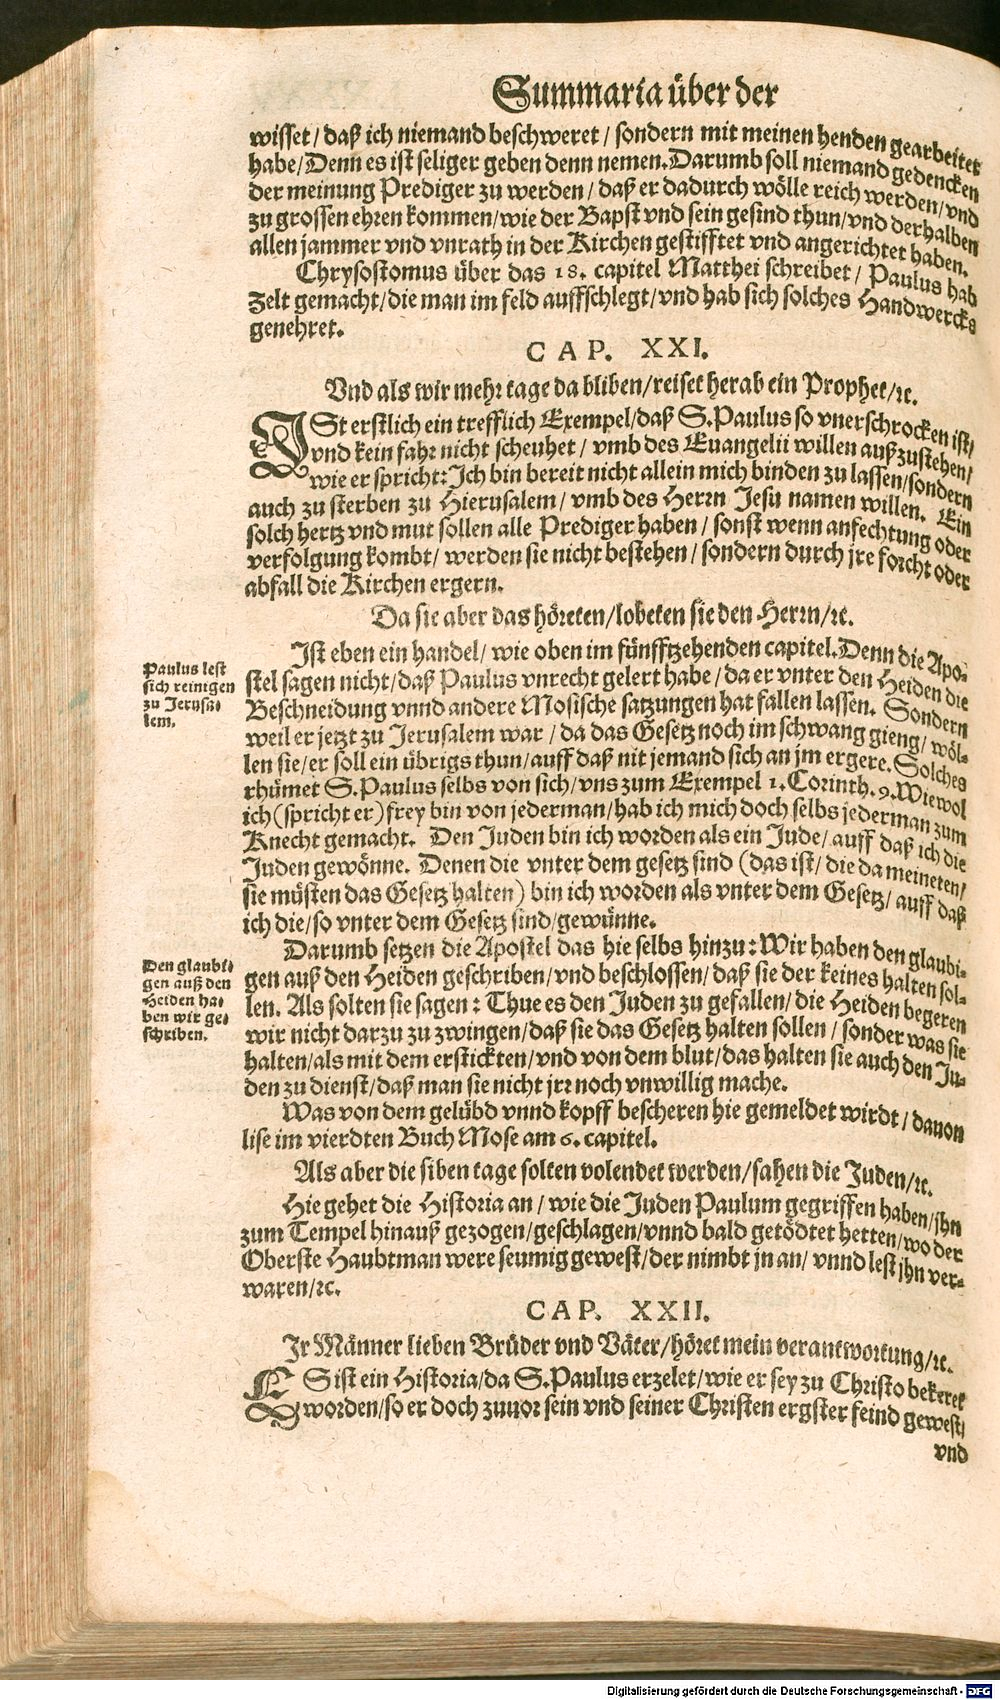 Summaria über der
wisset/ daß ich niemand beschweret/ sondern mit meinen henden gearbeitet
habe/ Denn es ist seliger geben denn nemen. Darumb soll niemand gedencken
der meinung Prediger zu werden/ daß er dadurch wölle reich werden/ vnd
zu grossen ehren kommen/ wie der Bapst vnd sein gesind thun/ vnd derhalben
allen jammer vnd vnrath in der Kirchen gestifftet vnd angerichtet haben.
Chrysostomus über das 18. capitel Matthei schreibet/ Paulus hab
Zelt gemacht/ die man im feld auffschlegt/ vnd hab sich solches Handwercks
genehret.
CAP. XXI.
Vnd als wir mehr tage da bliben/ reiset herab ein Prophet/ ꝛc.
ISt erstlich ein trefflich Exempel/ daß S. Paulus so vnerschrocken ist/
vnd kein fahr nicht scheuhet/ vmb des Euangelii willen außzustehen/
wie er spricht: Ich bin bereit nicht allein mich binden zu lassen/ sondern
auch zu sterben zu Hierusalem/ vmb des Herrn Jesu namen willen. Ein
solch hertz vnd mut sollen alle Prediger haben/ sonst wenn anfechtung oder
verfolgung kombt/ werden sie nicht bestehen/ sondern durch jre forcht oder
abfall die Kirchen ergern.
Da sie aber das höreten/ lobeten sie den Herrn/ ꝛc.
Paulus lest
sich reinigen
zu Jerusa-
lem.
Ist eben ein handel/ wie oben im fünfftzehenden capitel. Denn die Apo-
stel sagen nicht/ daß Paulus vnrecht gelert habe/ da er vnter den Heiden die
Beschneidung vnnd andere Mosische satzungen hat fallen lassen. Sondern
weil er jetzt zu Jerusalem war/ da das Gesetz noch im schwang gieng/ wöl-
len sie/ er soll ein übrigs thun/ auff daß nit jemand sich an jm ergere. Solches
rhümet S. Paulus selbs von sich/ vns zum Exempel 1. Corinth. 9. Wiewol
ich (spricht er) frey bin von jederman/ hab ich mich doch selbs jederman zum
Knecht gemacht. Den Juden bin ich worden als ein Jude/ auff daß ich die
Juden gewönne. Denen die vnter dem gesetz sind (das ist/ die da meineten/
sie müsten das Gesetz halten) bin ich worden als vnter dem Gesetz/ auff daß
ich die/ so vnter dem Gesetz sind/ gewünne.
Den glaubi-
gen auß den
Heiden ha-
ben wir ge-
schriben.
Darumb setzen die Apostel das hie selbs hinzu: Wir haben den glaubi-
gen auß den Heiden geschriben/ vnd beschlossen/ daß sie der keines halten sol-
len. Als solten sie sagen: Thue es den Juden zu gefallen/ die Heiden begeren
wir nicht darzu zu zwingen/ daß sie das Gesetz halten sollen/ sonder was sie
halten/ als mit dem erstickten/ vnd von dem blut/ das halten sie auch den Ju-
den zu dienst/ daß man sie nicht jrr noch vnwillig mache.
Was von dem gelübd vnnd kopff bescheren hie gemeldet wirdt/ dauon
lise im vierdten Buch Mose am 6. capitel.
Als aber die siben tage solten volendet werden/ sahen die Juden/ ꝛc.
Hie gehet die Historia an/ wie die Juden Paulum gegriffen haben/ jhn
zum Tempel hinauß gezogen/ geschlagen/ vnnd bald getödtet hetten/ wo der
Oberste Haubtman were seumig gewest/ der nimbt jn an/ vnnd lest jhn ver-
waren/ ꝛc.
CAP. XXII.
Jr Männer lieben Brüder vnd Väter/ höret mein verantwortung/ ꝛc.
ES ist ein Historia/ da S. Paulus erzelet/ wie er sey zu Christo bekeret
worden/ so er doch zuuor sein vnd seiner Christen ergster feind gewest/
vnd
Digitalisierung gefördert durch die Deutsche Forschungsgemeinschaft - DFG